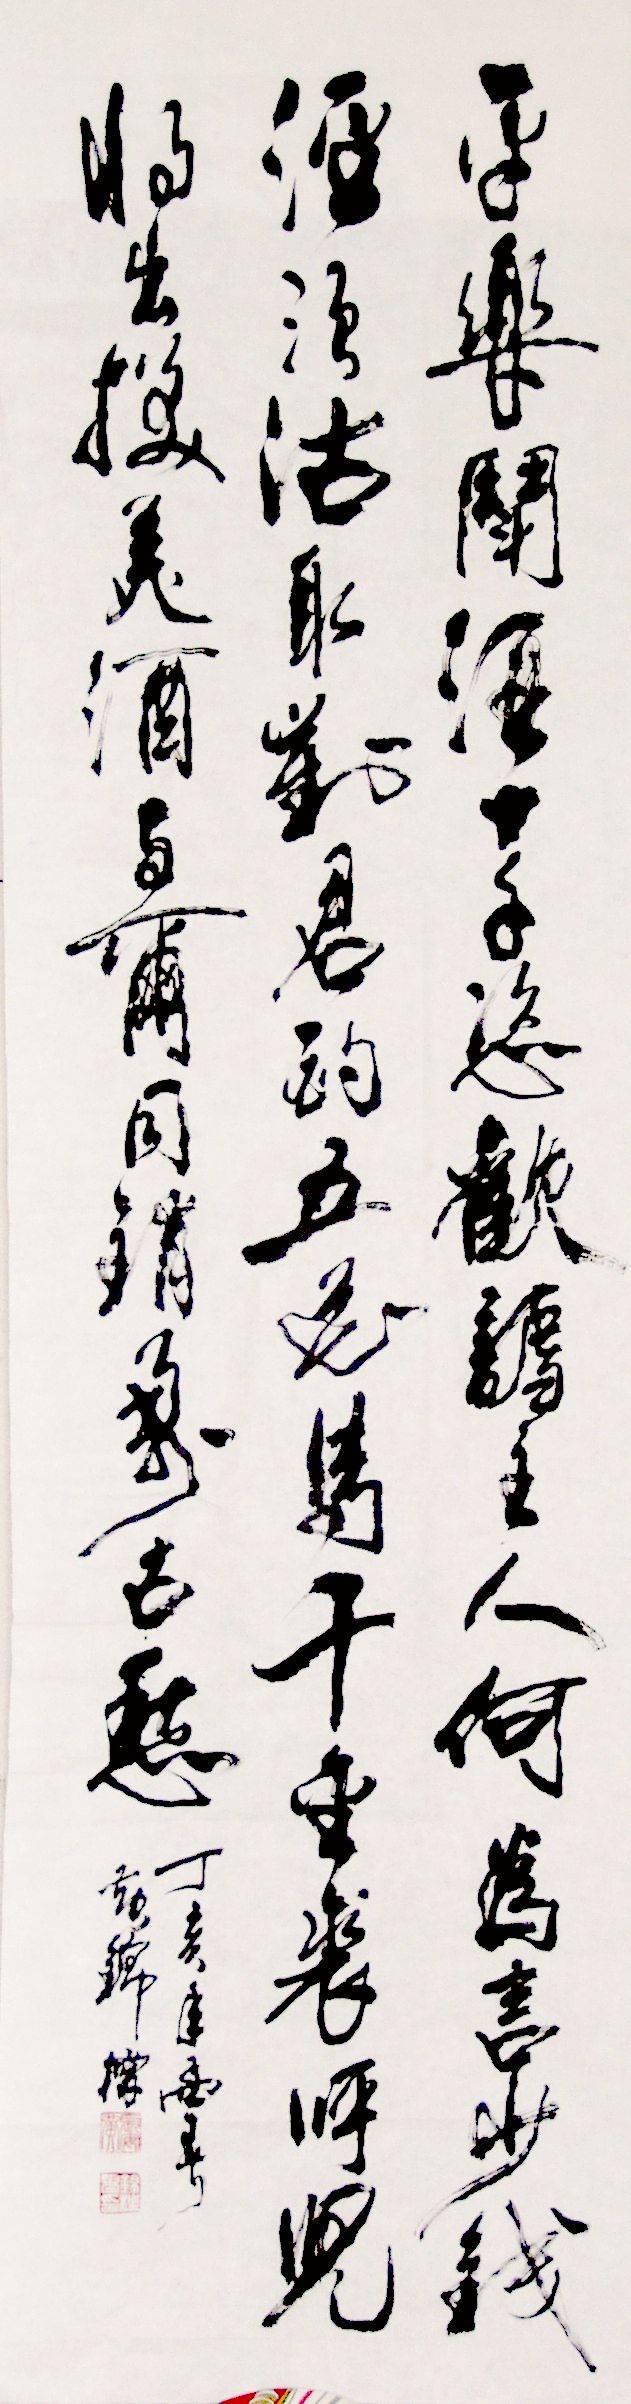 平樂鬪酒十千恣歡謔主人何為言少錢
徑須沽取對君酌五花馬千金裘呼兒
將出換美酒與爾同銷萬古愁
丁亥年
錦